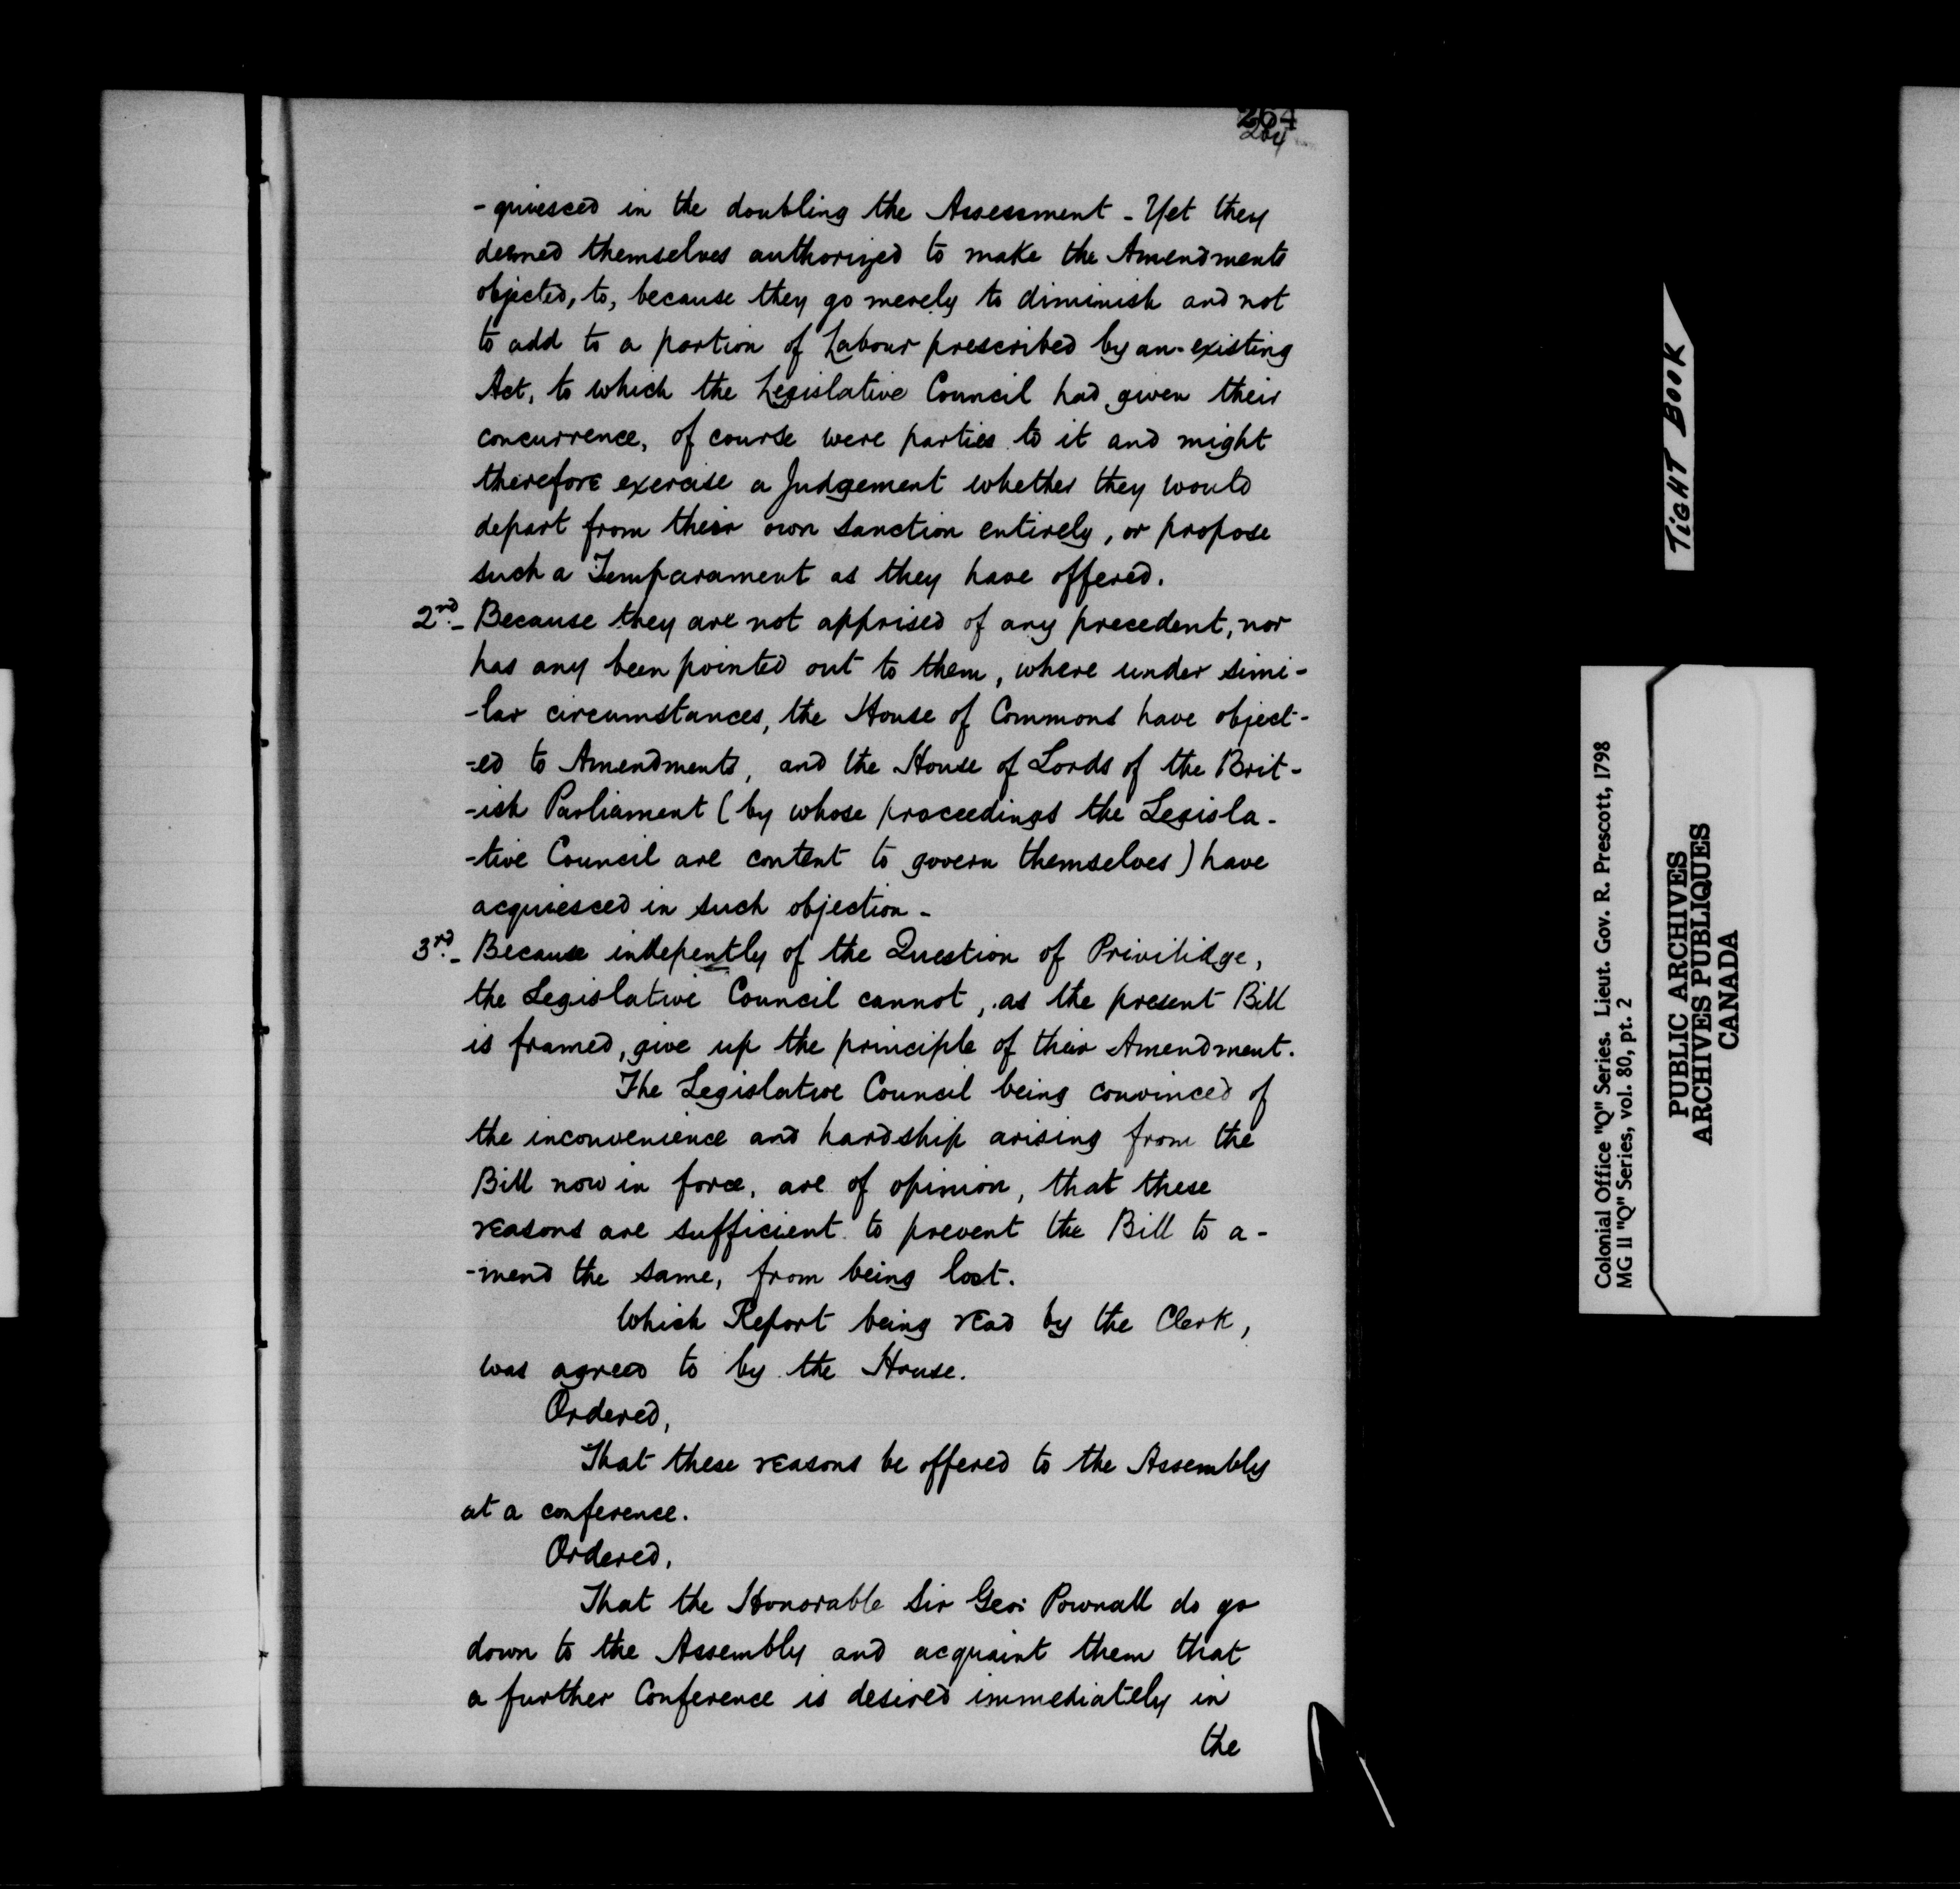 264
264
-quiesced in the doubling the Assessment - Yet they
deemed themselves authorized to make the Amendments
objected, to, because they go merely to diminish and not
to add to a portion of Labour prescribed by an existing
Act, to which the Legislative Council had given their
concurrence, of course were parties to it and might
therefore exercise a Judgement whether they would
depart from their own sanction entirely, or propose
such a Temparament as they have offered.
2nd. - Because they are not apprised of any precedent, nor
has any been pointed out to them, where under simi-
-lar circumstances, the House of Commons have object-
-ed to Amendments, and the House of Lords of the Brit-
-ish Parliament (by whose proceedings the Legisla-
-tive Council are content to govern themselves) have
acquiesced in such objection -
3rd. - Because indepently of the Question of Privilidge,
the Legislative Council cannot, as the present Bill
is framed, give up the principle of their Amendment.
The Legislative Council being convinced of
the inconvenience and hardship arising from the
Bill now in force, are of opinion, that these
reasons are sufficient to prevent the Bill to a-
-mend the same, from being lost.
Which Report being read by the Clerk,
was agreed to by the House.
Ordered,
That these reasons be offered to the Assembly
at a conference.
Ordered,
That the Honorable Sir Geo: Pownall do go
down to the Assembly and acquaint them that
a further Conference is desired immediately in
the
TIGHT BOOK
Colonial Office "Q" Series. Lieut. Gov. R. Prescott, 1798
MG 11 "Q" Series, vol. 80, pt. 2
PUBLIC ARCHIVES
ARCHIVES PUBLIQUES
CANADA